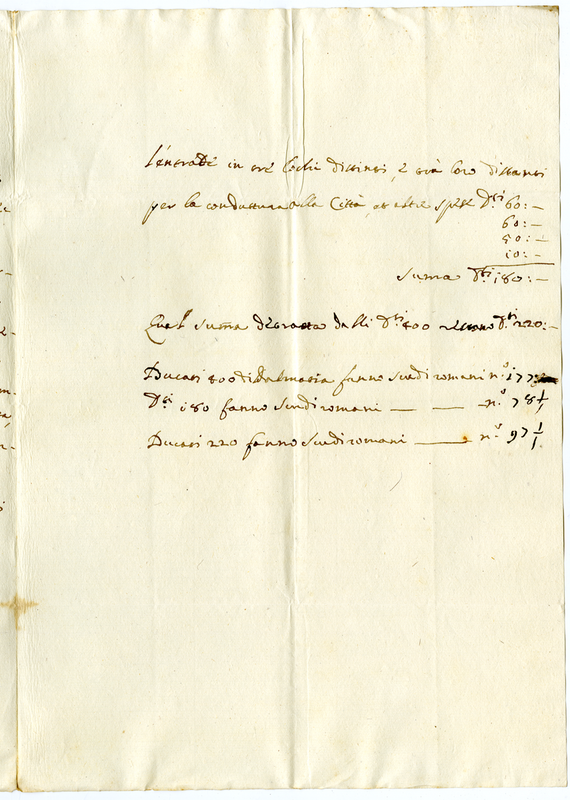 l'entrate in tre lochi distinti, e trà loro distanti
per la conduttura alla Città, et altre spese D.ti 60:—
60:—
50:—
10:—
Suma D.ti 180:—
Qual suma detratta dalli D.ti 400 restano D.ti 220:—
Ducati 400 di Dalmatia fanno scudi romani n.º 177:
D.ti 180 fanno scudi romani — — n.º 78
Ducati 220 fanno scudi romani — n.º 97